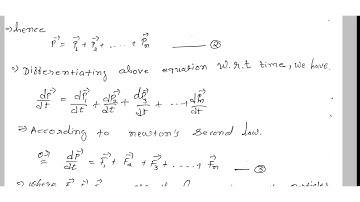 → hence
P⃗ = P⃗₁ + P⃗₂ + ..... + P⃗ₙ —— ②
→ Differentiating above equation W.r.t time, we have.
dP⃗/dt = dP⃗₁/dt + dP⃗₂/dt + dP⃗₃/dt + ... + dP⃗ₙ/dt
⇒ According to newton's second law.
or dP⃗/dt = F⃗₁ + F⃗₂ + F⃗₃ + ..... + F⃗ₙ —— ③
⇒ where
particles